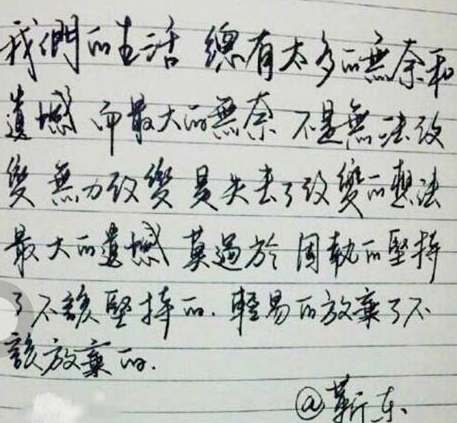 我們的生活 總有太多的無奈和
遺憾 而最大的無奈 不是無法改
變 無力改變 是失去了改變的想法
最大的遺憾 莫過於 固執的堅持
了不該堅持的. 輕易的放棄了不
該放棄的.
@靳东